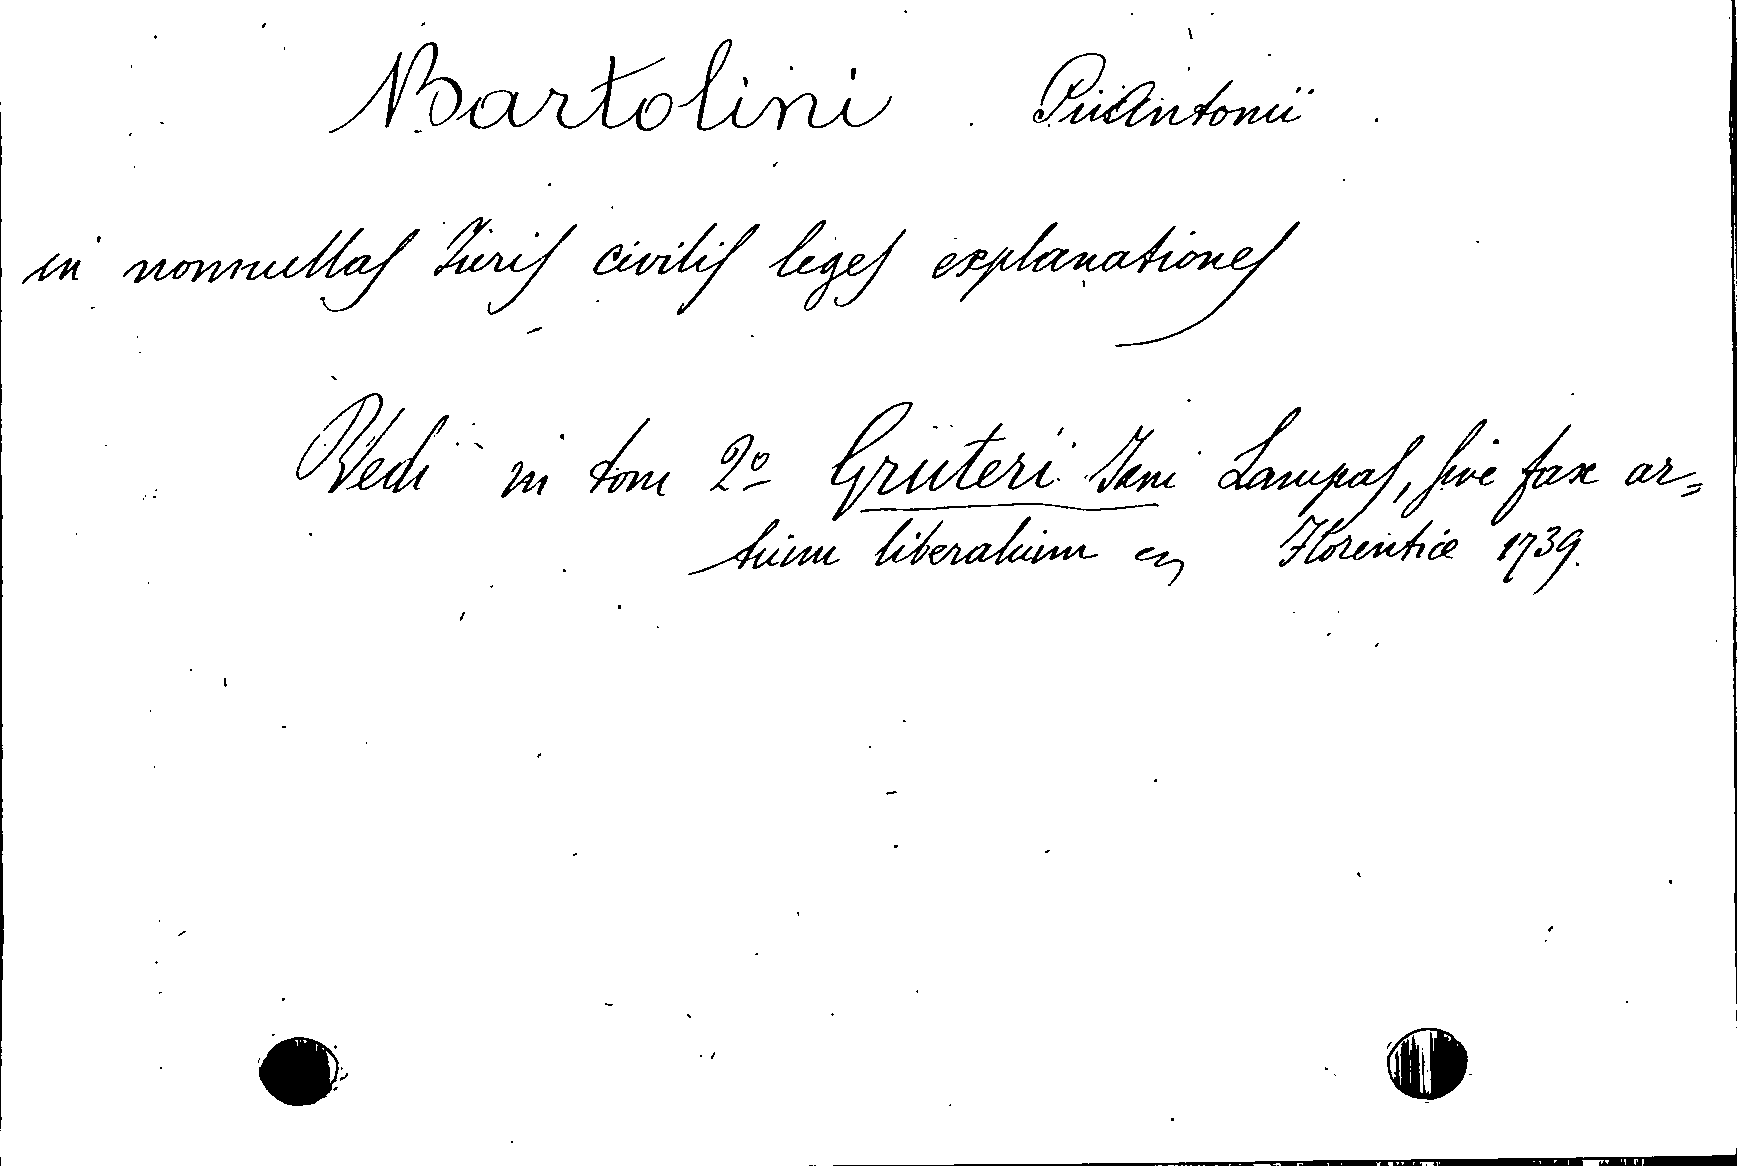 Bartolini Pii Antonii
in nonnullas Iuris civilis leges explanationes
Vedi in tom 2º Gruteri Jani Lampas, sive fax ar=
tium liberalium Florentiæ 1739.